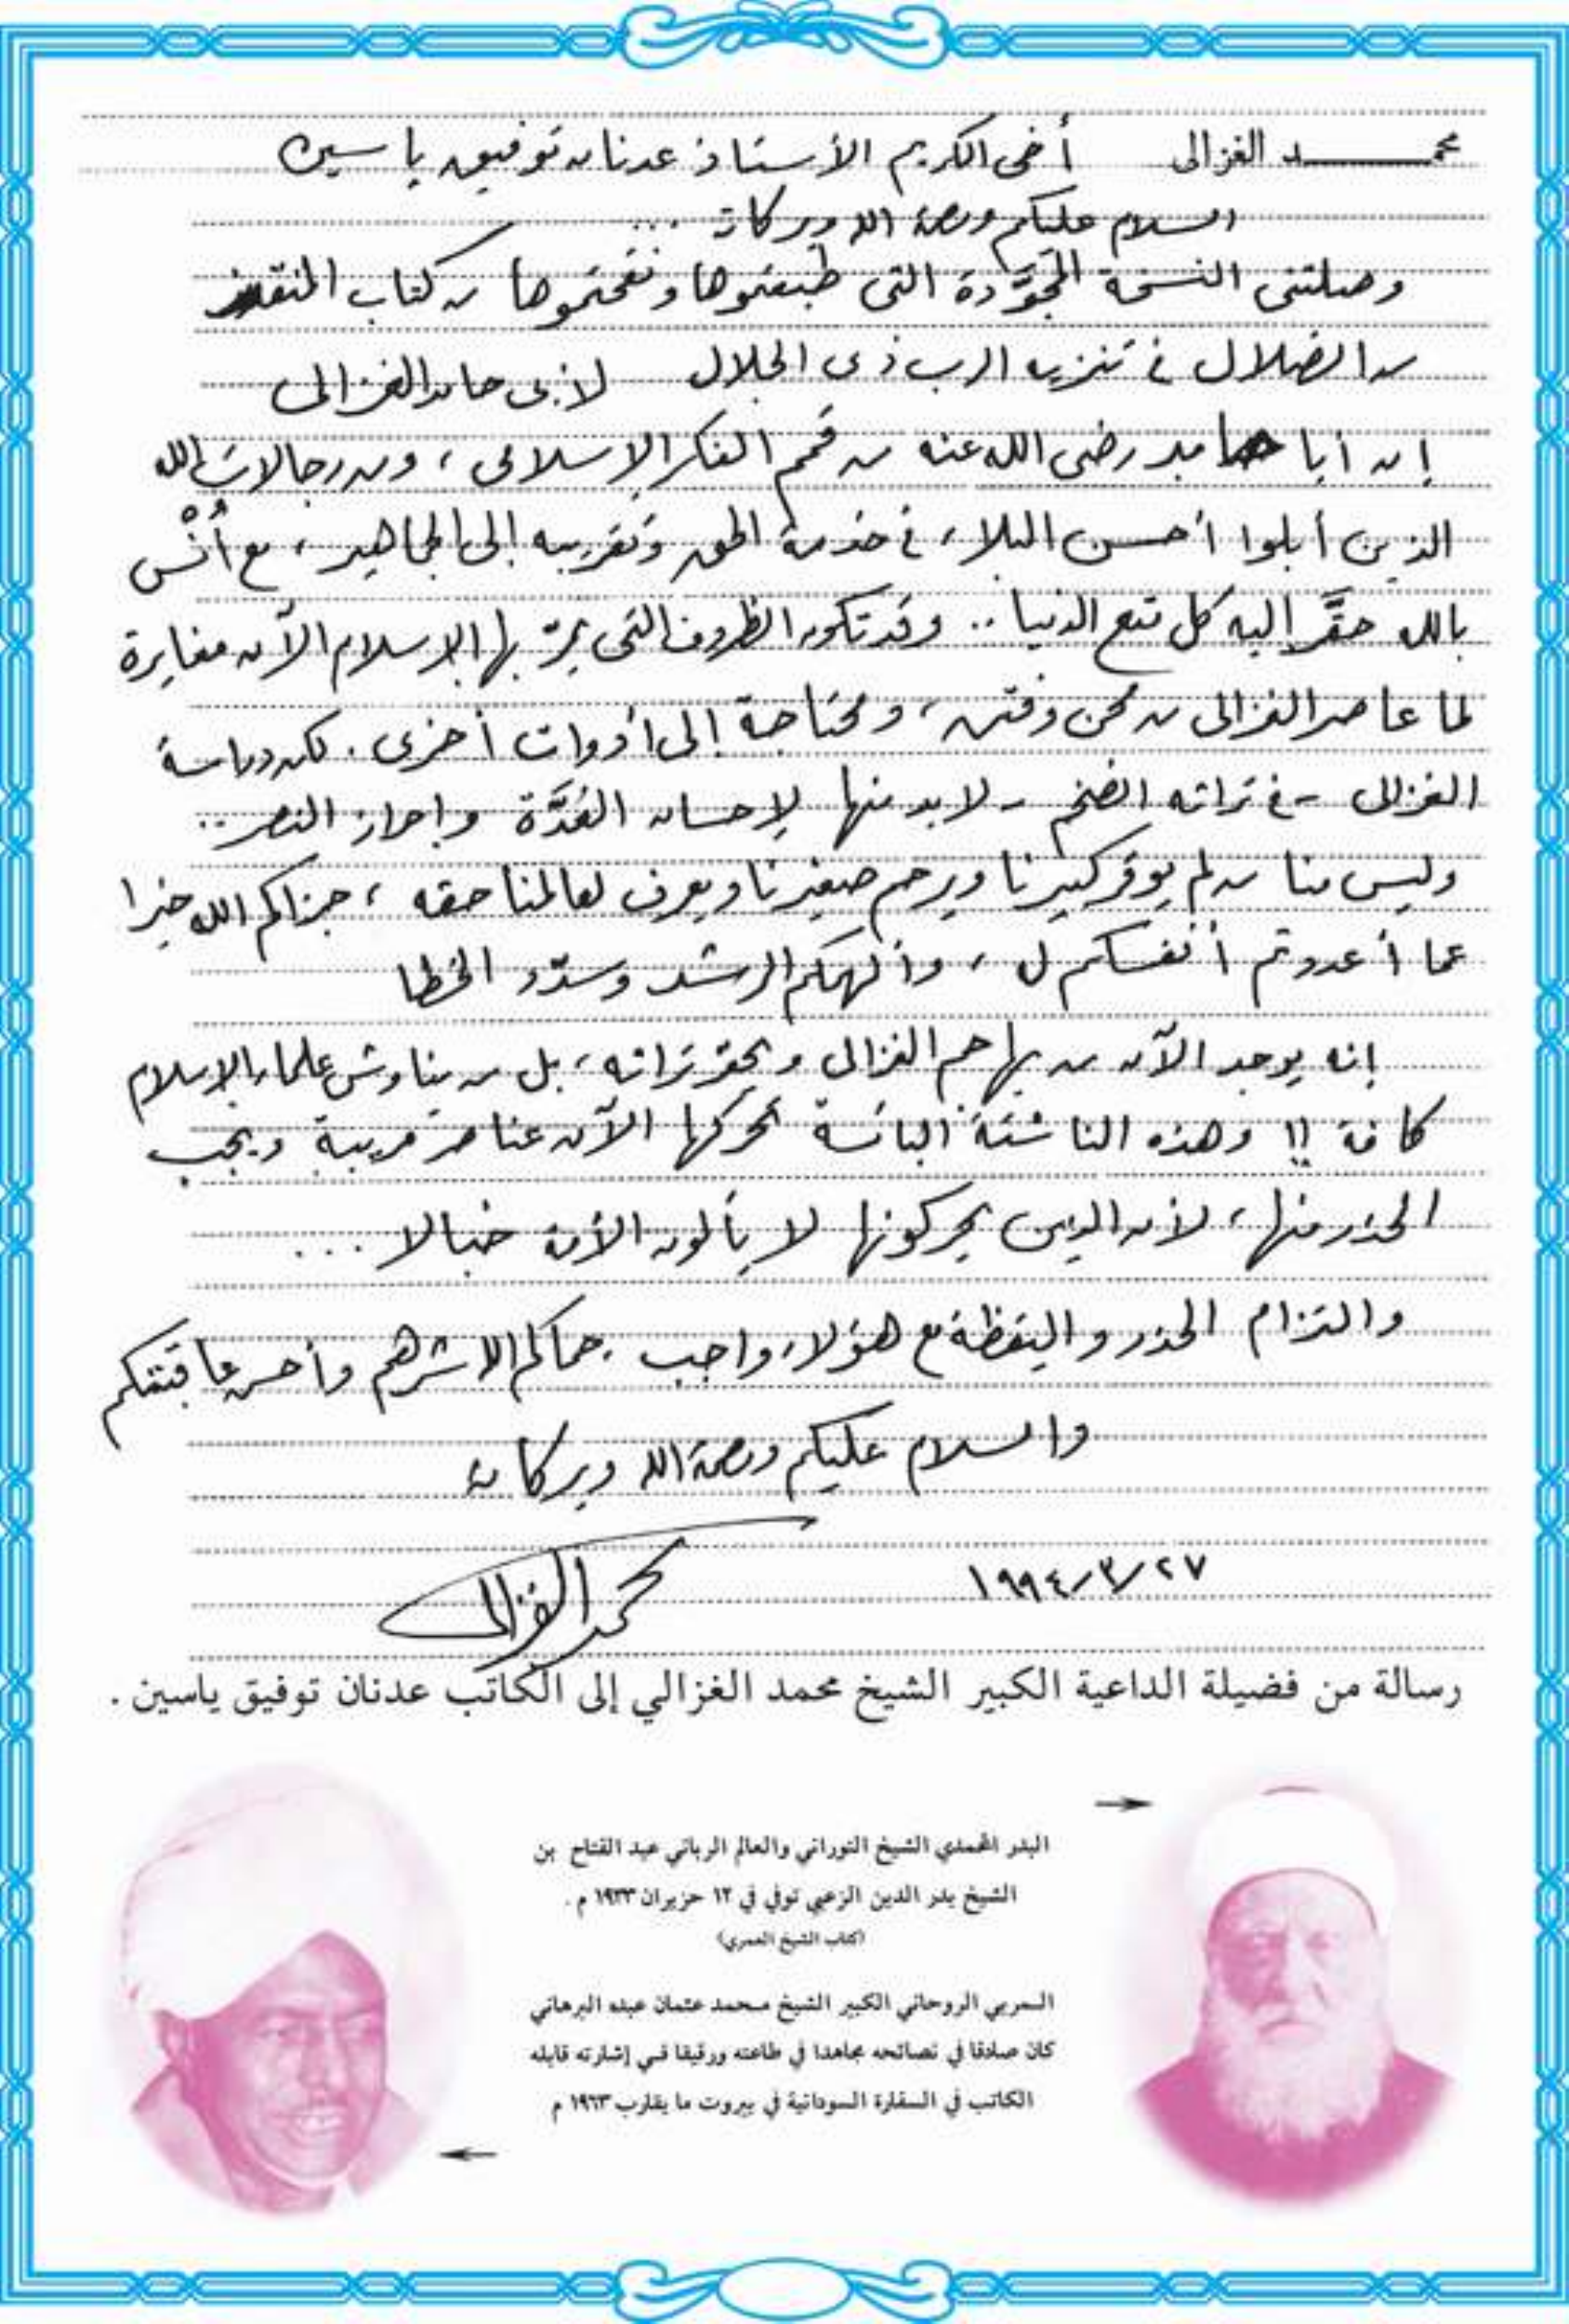 محمد الغزالى أخى الكريم الأستاذ عدنان توفيق ياسين
السلام عليكم ورحمة الله وبركاته ...
وصلتنى النسخة المجوَّدة التى طبعتموها ونقحتموها من كتاب المنقذ
من الضلال فى تنزيه الرب ذى الجلال لأبى حامد الغزالى
إن أبا حامد رضى الله عنه من قمم الفكر الإسلامى ، ومن رجالات الله
الذين أبلوا أحسن البلاء فى خدمة الحق وتقريبه إلى الجماهير ، مع أُنْس
بالله حقَّر إليه كل متع الدنيا .. وقد تكون الظروف التى يمرّ بها الإسلام الآن مغايرة
لما عاصر الغزالى من محن وفتن ، ومحتاجة إلى أدوات أخرى . لكن دراسة
الغزالى - فى تراثه الضخم - لا بد منها لإحسان العُدَّة وإحراز النصر ..
وليس منا من لم يوقر كبيرنا ويرحم صغيرنا ويعرف لعالمنا حقه ، جزاكم الله خيرا
عما أعددتم أنفسكم له ، وألهمكم الرشد وسدّد الخطا
إنه يوجد الآن من يهاجم الغزالى ويحقر تراثه ، بل من يناوش علماء الإسلام
كافة !! وهذه الناشئة البائسة تحركها الآن عناصر مريبة ويجب
الحذر منها ، لأن الذين يحركونها لا يألون الأمة خبالا ...
والتزام الحذر واليقظة مع هؤلاء واجب . حماكم الله شرهم وأحسن عاقبتكم
والسلام عليكم ورحمة الله وبركاته
٢٧/٣/١٩٩٤
محمد الغزالى
رسالة من فضيلة الداعية الكبير الشيخ محمد الغزالي إلى الكاتب عدنان توفيق ياسين .
البدر المحمدي الشيخ النوراني والعالم الرباني عبد الفتاح بن
الشيخ بدر الدين الزعبي توفي في ١٢ حزيران ١٩٣٣ م .
(كتاب الشيخ العمري)
المربي الروحاني الكبير الشيخ محمد عثمان عبده البرهاني
كان صادقا في نصائحه مجاهدا في طاعته ورقيقا في إشارته قابله
الكاتب في السفارة السودانية في بيروت ما يقارب ١٩٦٣ م